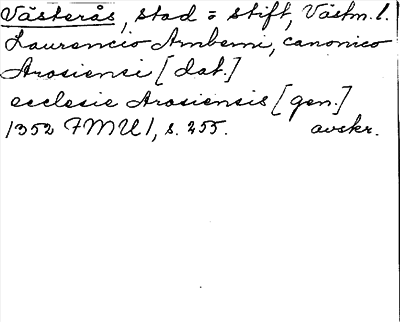 Västerås, stad o stift, Västm. l.
Laurencio Amberni, canonico
Arosiensi [dat.]
ecclesie Arosiensis [gen.]
1352 FMU 1, s. 255. avskr.